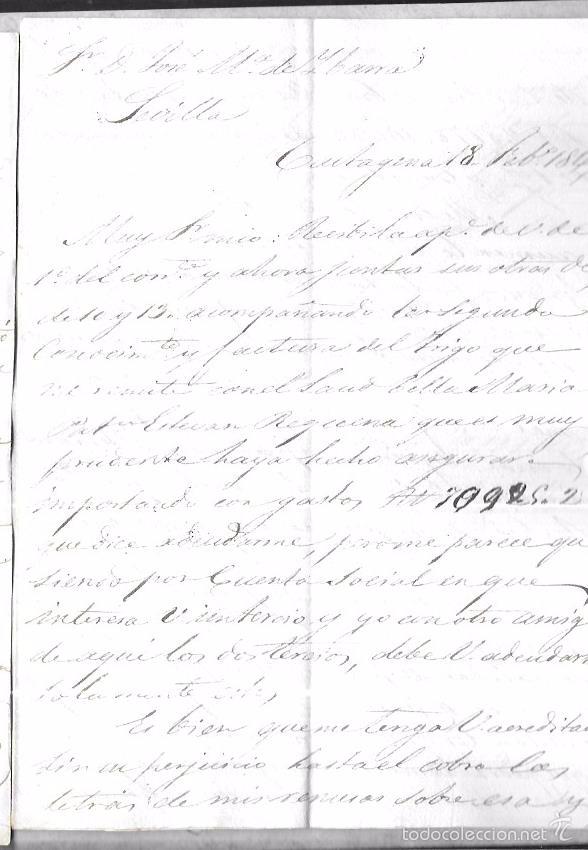 Sr. D. José Ma. de Ybarra
Sevilla
Cartagena 18 Feb.o 184
Muy Sr. mio: Recibi la ap.da de V. de
1o. del corr.te y ahora juntas sus otras dos
de 10 y 13, acompañando segundo
Conocim.to y factura del Trigo que
me remite con el Laud bella Maria
Pat.n Estevan Requena que es muy
prudente haya hecho asegurar.
importando con gastos 10925.2
que dice adeudarme, pero me parece qu
siendo por Cuenta Social en que
interesa V. un tercio y yo con otro amig
de aqui los dos tercios, debe V. adeudar
solamente
Es bien que me tenga V. acredita
sin mi perjuicio hasta el cobro las
letras de mis remesas sobre esa y
todocoleccion.net